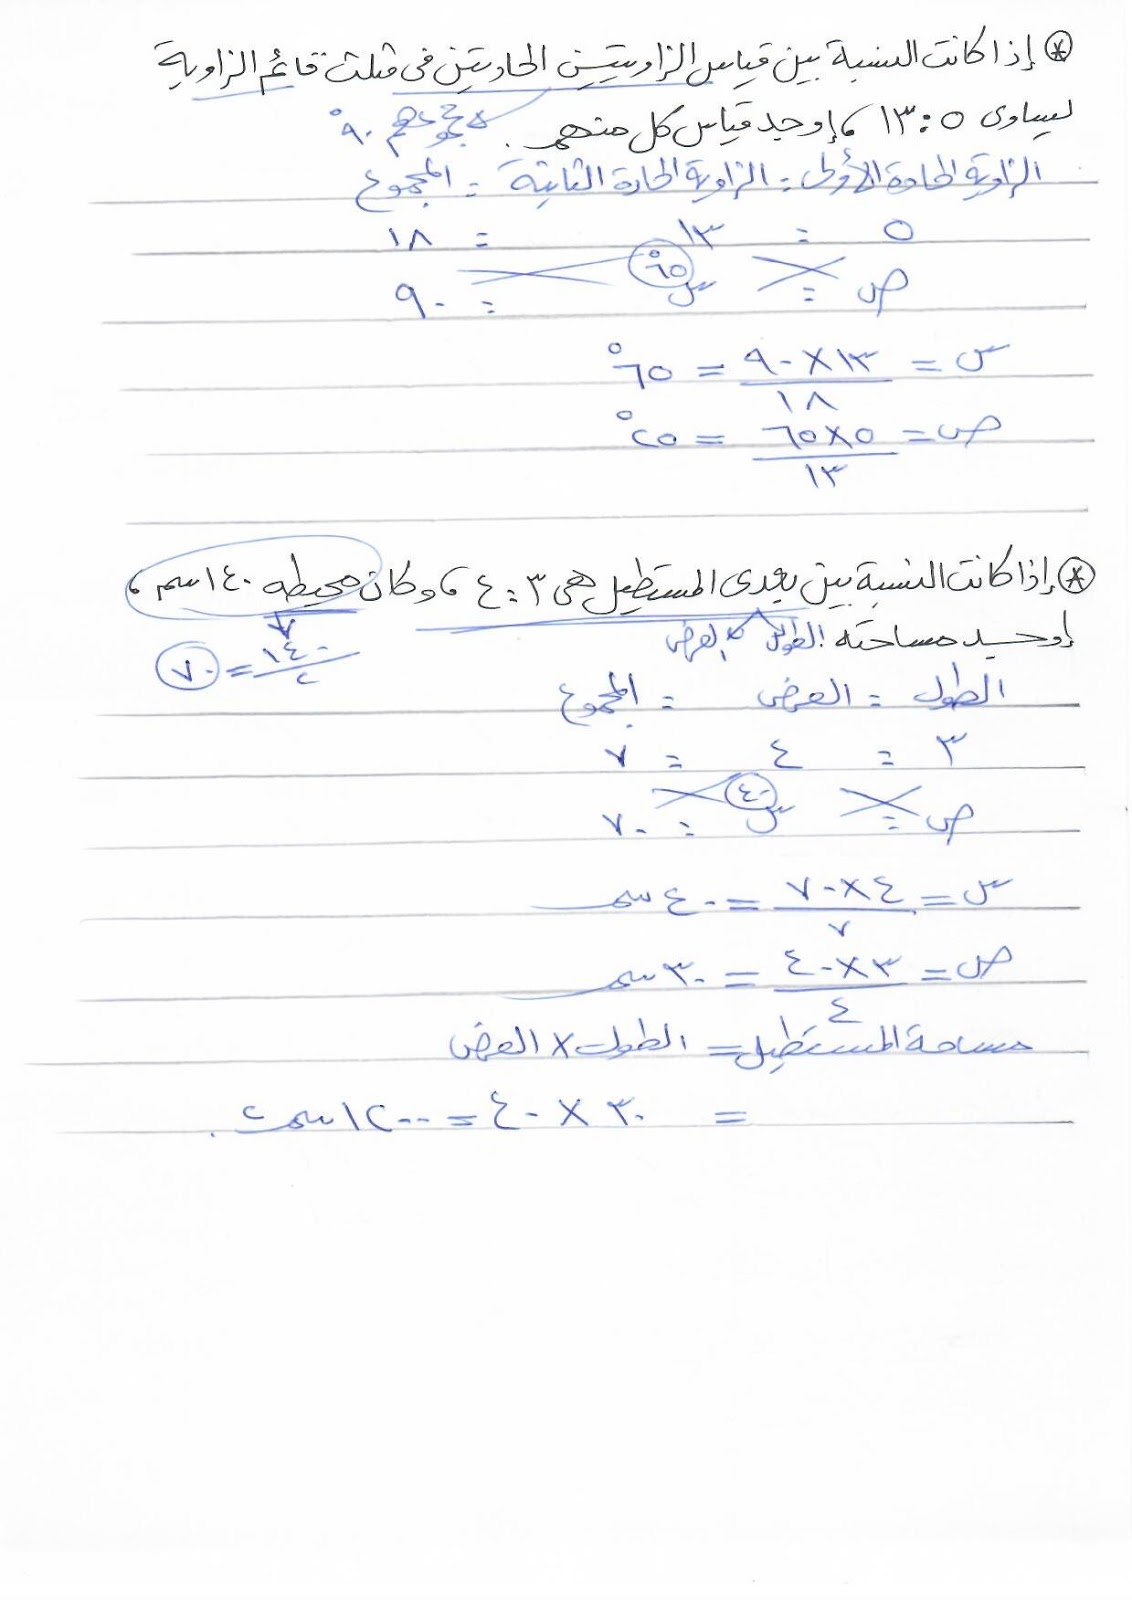 * إذا كانت النسبة بين قياس الزاويتين الحادتين فى مثلث قائم الزاوية
يساوى ٥ : ١٣ ، إوجد قياس كل منهم . مجموعهم ٩٠°
الزاوية الحادة الأولى : الزاوية الحادة الثانية : المجموع
٥ : ١٣ : ١٨
ص : س : ٩٠
٦٥°
س = ١٣ × ٩٠ / ١٨ = ٦٥°
ص = ٥ × ٦٥ / ١٣ = ٢٥°
* إذا كانت النسبة بين بعدى المستطيل هى ٣ : ٤ ، وكان محيطه ١٤٠ سم ،
إوجد مساحته الطول ، العرض
١٤٠ / ٢ = ٧٠
الطول : العرض : المجموع
٣ : ٤ : ٧
ص : س : ٧٠
٤٠
س = ٤ × ٧٠ / ٧ = ٤٠ سم
ص = ٣ × ٤٠ / ٤ = ٣٠ سم
مساحة المستطيل = الطول × العرض
= ٣٠ × ٤٠ = ١٢٠٠ سم٢ .